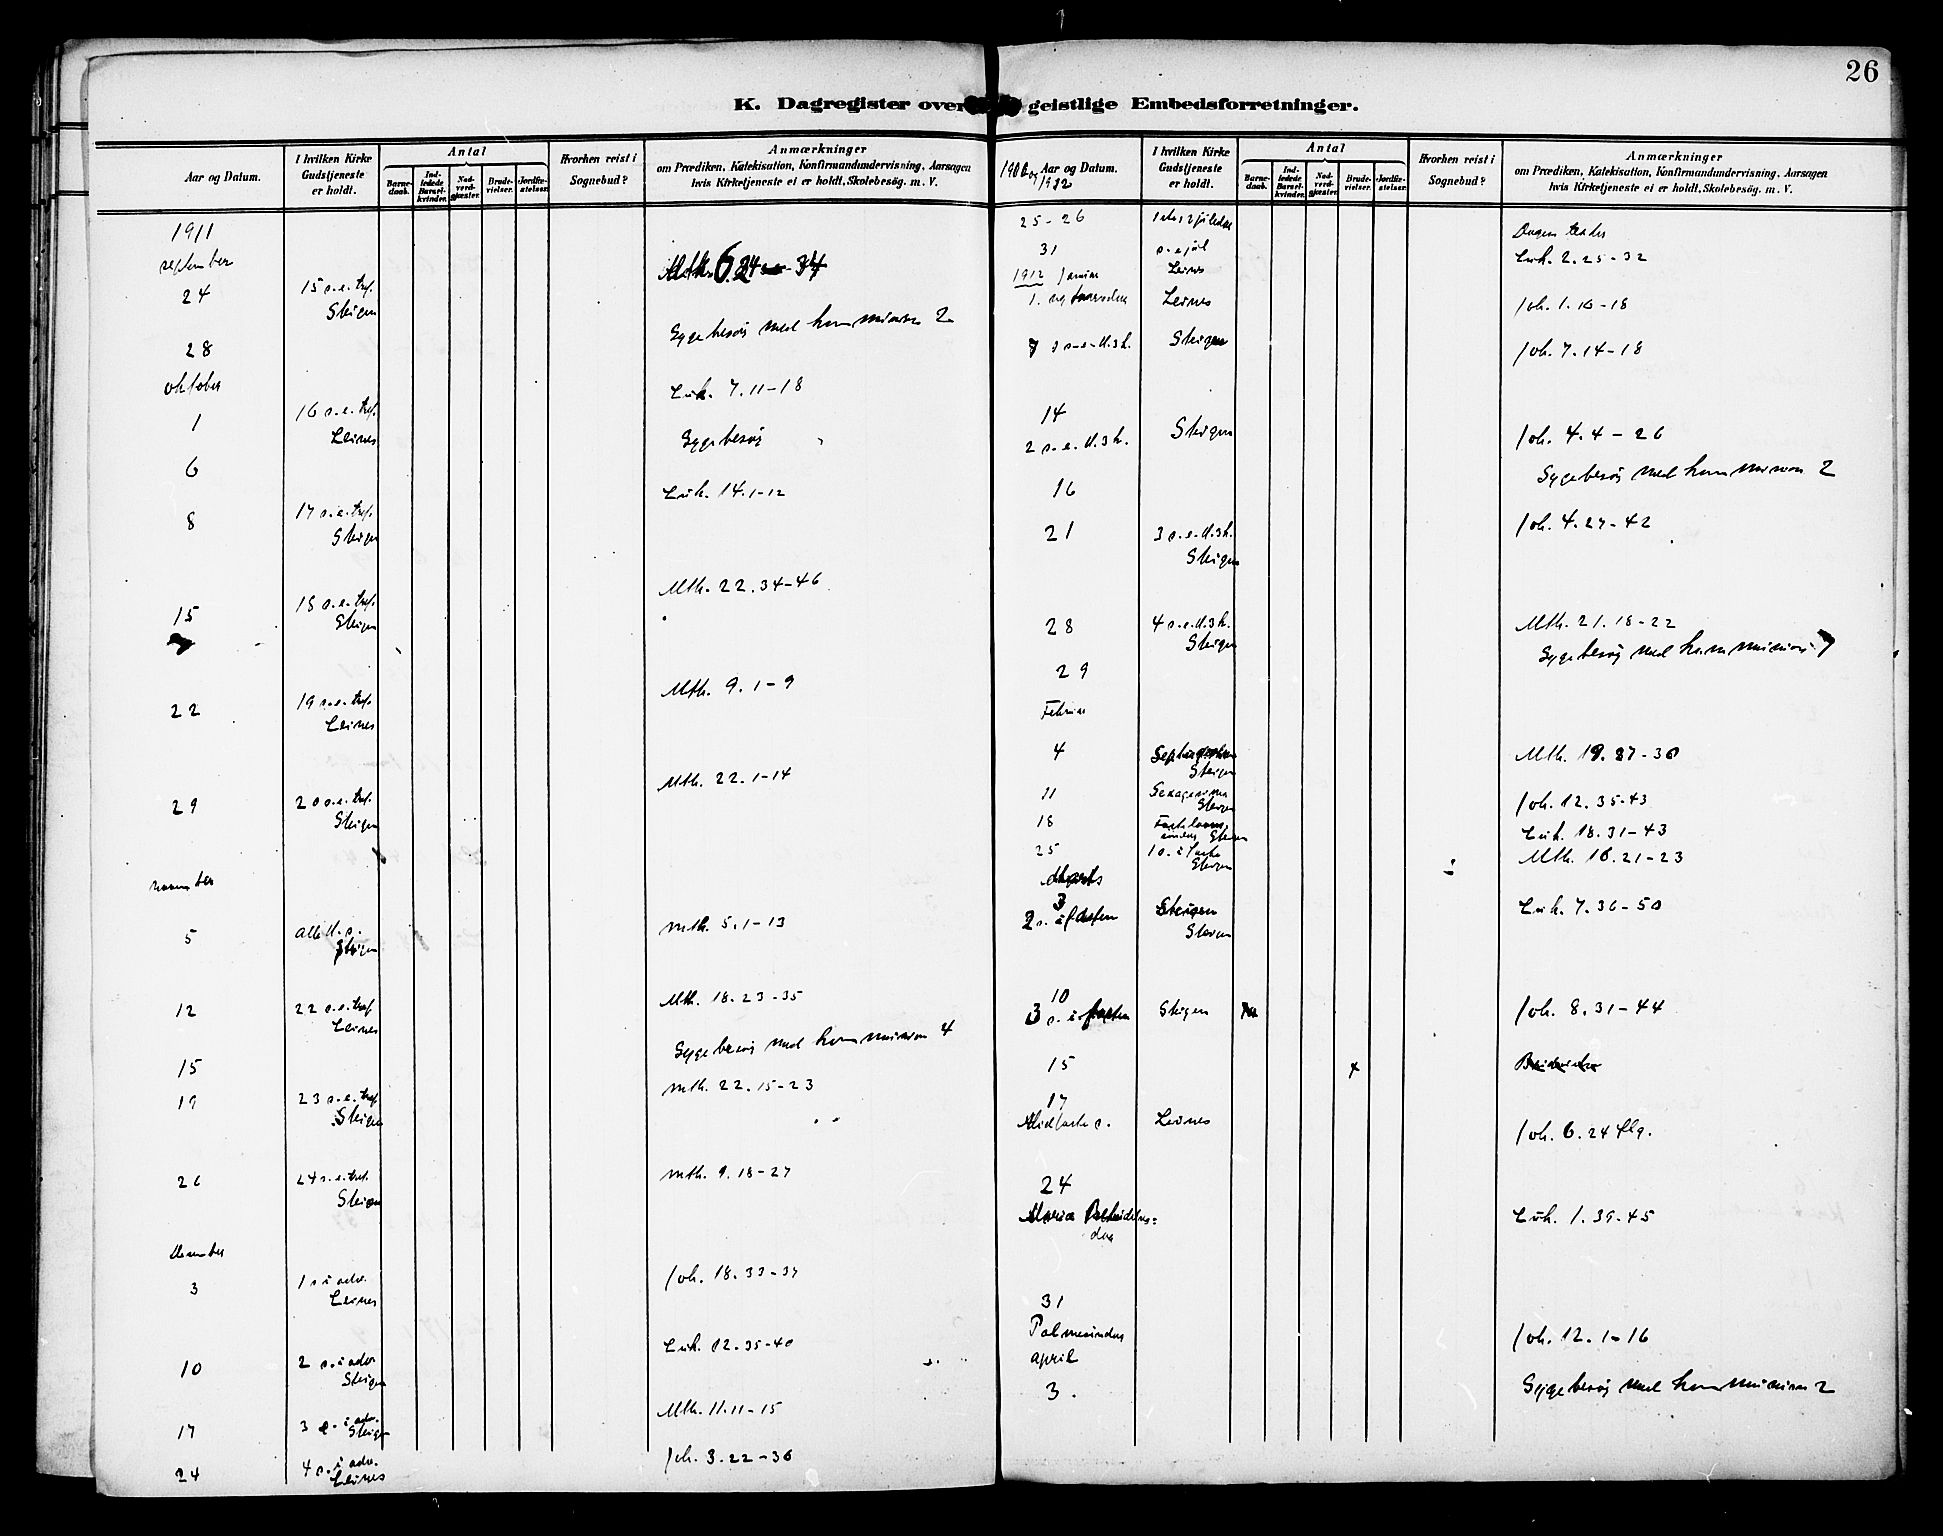 26
K. Dagregister over geistlige Embedsforretninger.
Aar og Datum.
I hvilken Kirke Gudstjeneste er holdt.
Antal
Barnedaab.
Indledede Barselkvinder.
Nadverdgjæster.
Brudevielser.
Jordfæstelser.
Hvorhen reist i Sognebud?
Anmærkninger
om Prædiken, Katekisation, Konfirmandundervisning, Aarsagen
hvis Kirketjeneste ei er holdt, Skolebesøg. m. V.
1911
september
24 15 s.e.tref. Steigen Mth. 6.24-34
28 Sygebesøg med kommunion 2
oktober
1 16 s.e.tref. Leines Luk. 7.11-18
6 Sygebesøg
8 17 s.e.tref. Steigen Luk. 14.1-12
15 18 s.e.tref. Steigen Mth. 22.34-46
22 19 s.e.tref. Leines Mth. 9.1-9
29 20 s.e.tref. Steigen Mth. 22.1-14
november
5 alle h.s. Steigen Mth. 5.1-13
12 22 s.e.tref. Leines Mth. 18.23-35
15 Sygebesøg med kommunion 4
19 23 s.e.tref. Steigen Mth. 22.15-23
26 24 s.e.tref. Steigen Mth. 9.18-27
December
3 1 s i adv. Leines Joh. 18.33-37
10 2 s. i adv. Steigen Luk. 12.35-40
17 3 s. i adv. Steigen Mth. 11.11-15
24 4 s. i adv. Leines Joh. 3.22-36
Aar og Datum.
1912
I hvilken Kirke Gudstjeneste er holdt.
Antal
Barnedaab.
Indledede Barselkvinder.
Nadverdgjæster.
Brudevielser.
Jordfæstelser.
Hvorhen reist i Sognebud?
Anmærkninger
om Prædiken, Katekisation, Konfirmandundervisning, Aarsagen
hvis Kirketjeneste ei er holdt, Skolebesøg. m. V.
25-26 1 2 juledag Dagens tekster
31 s.e.jul Leines Luk. 2.25-32
1912 Januar
1. nytaarsdag Leines Joh. 1.16-18
7 1 s.e.H.3k. Steigen Joh. 7.14-18
14
2 s.e.H.3k. Steigen Joh. 4.4-26
16 Sygebesøg med kommunion 2
21 3 s.e.H.3k. Steigen Joh. 4.27-42
28 4 s.e.H.3k. Steigen Mth. 21.18-22
29 Sygebesøg med kommunion 7
Februar
4 Steigen Mth. 19.27-30
11 Sexagesima Steigen Joh. 12.35-43
18 Fastelavnssøndag Steigen Luk. 18.31-43
25 1 s. i faste Steigen Mth. 16.21-23
Marts
3
2 s. i fasten Steigen Steigen Luk. 7.36-50
10
3 s. i fasten Steigen Joh. 8.31-44
15
17
Midfaste s. Leines Joh. 6.24 flg.
24
Maria Bebudelses=
dag Luk. 1.39-45
31
Palmesøndag Joh. 12.1-16
april
3. Sygebesøg med kommunion 2